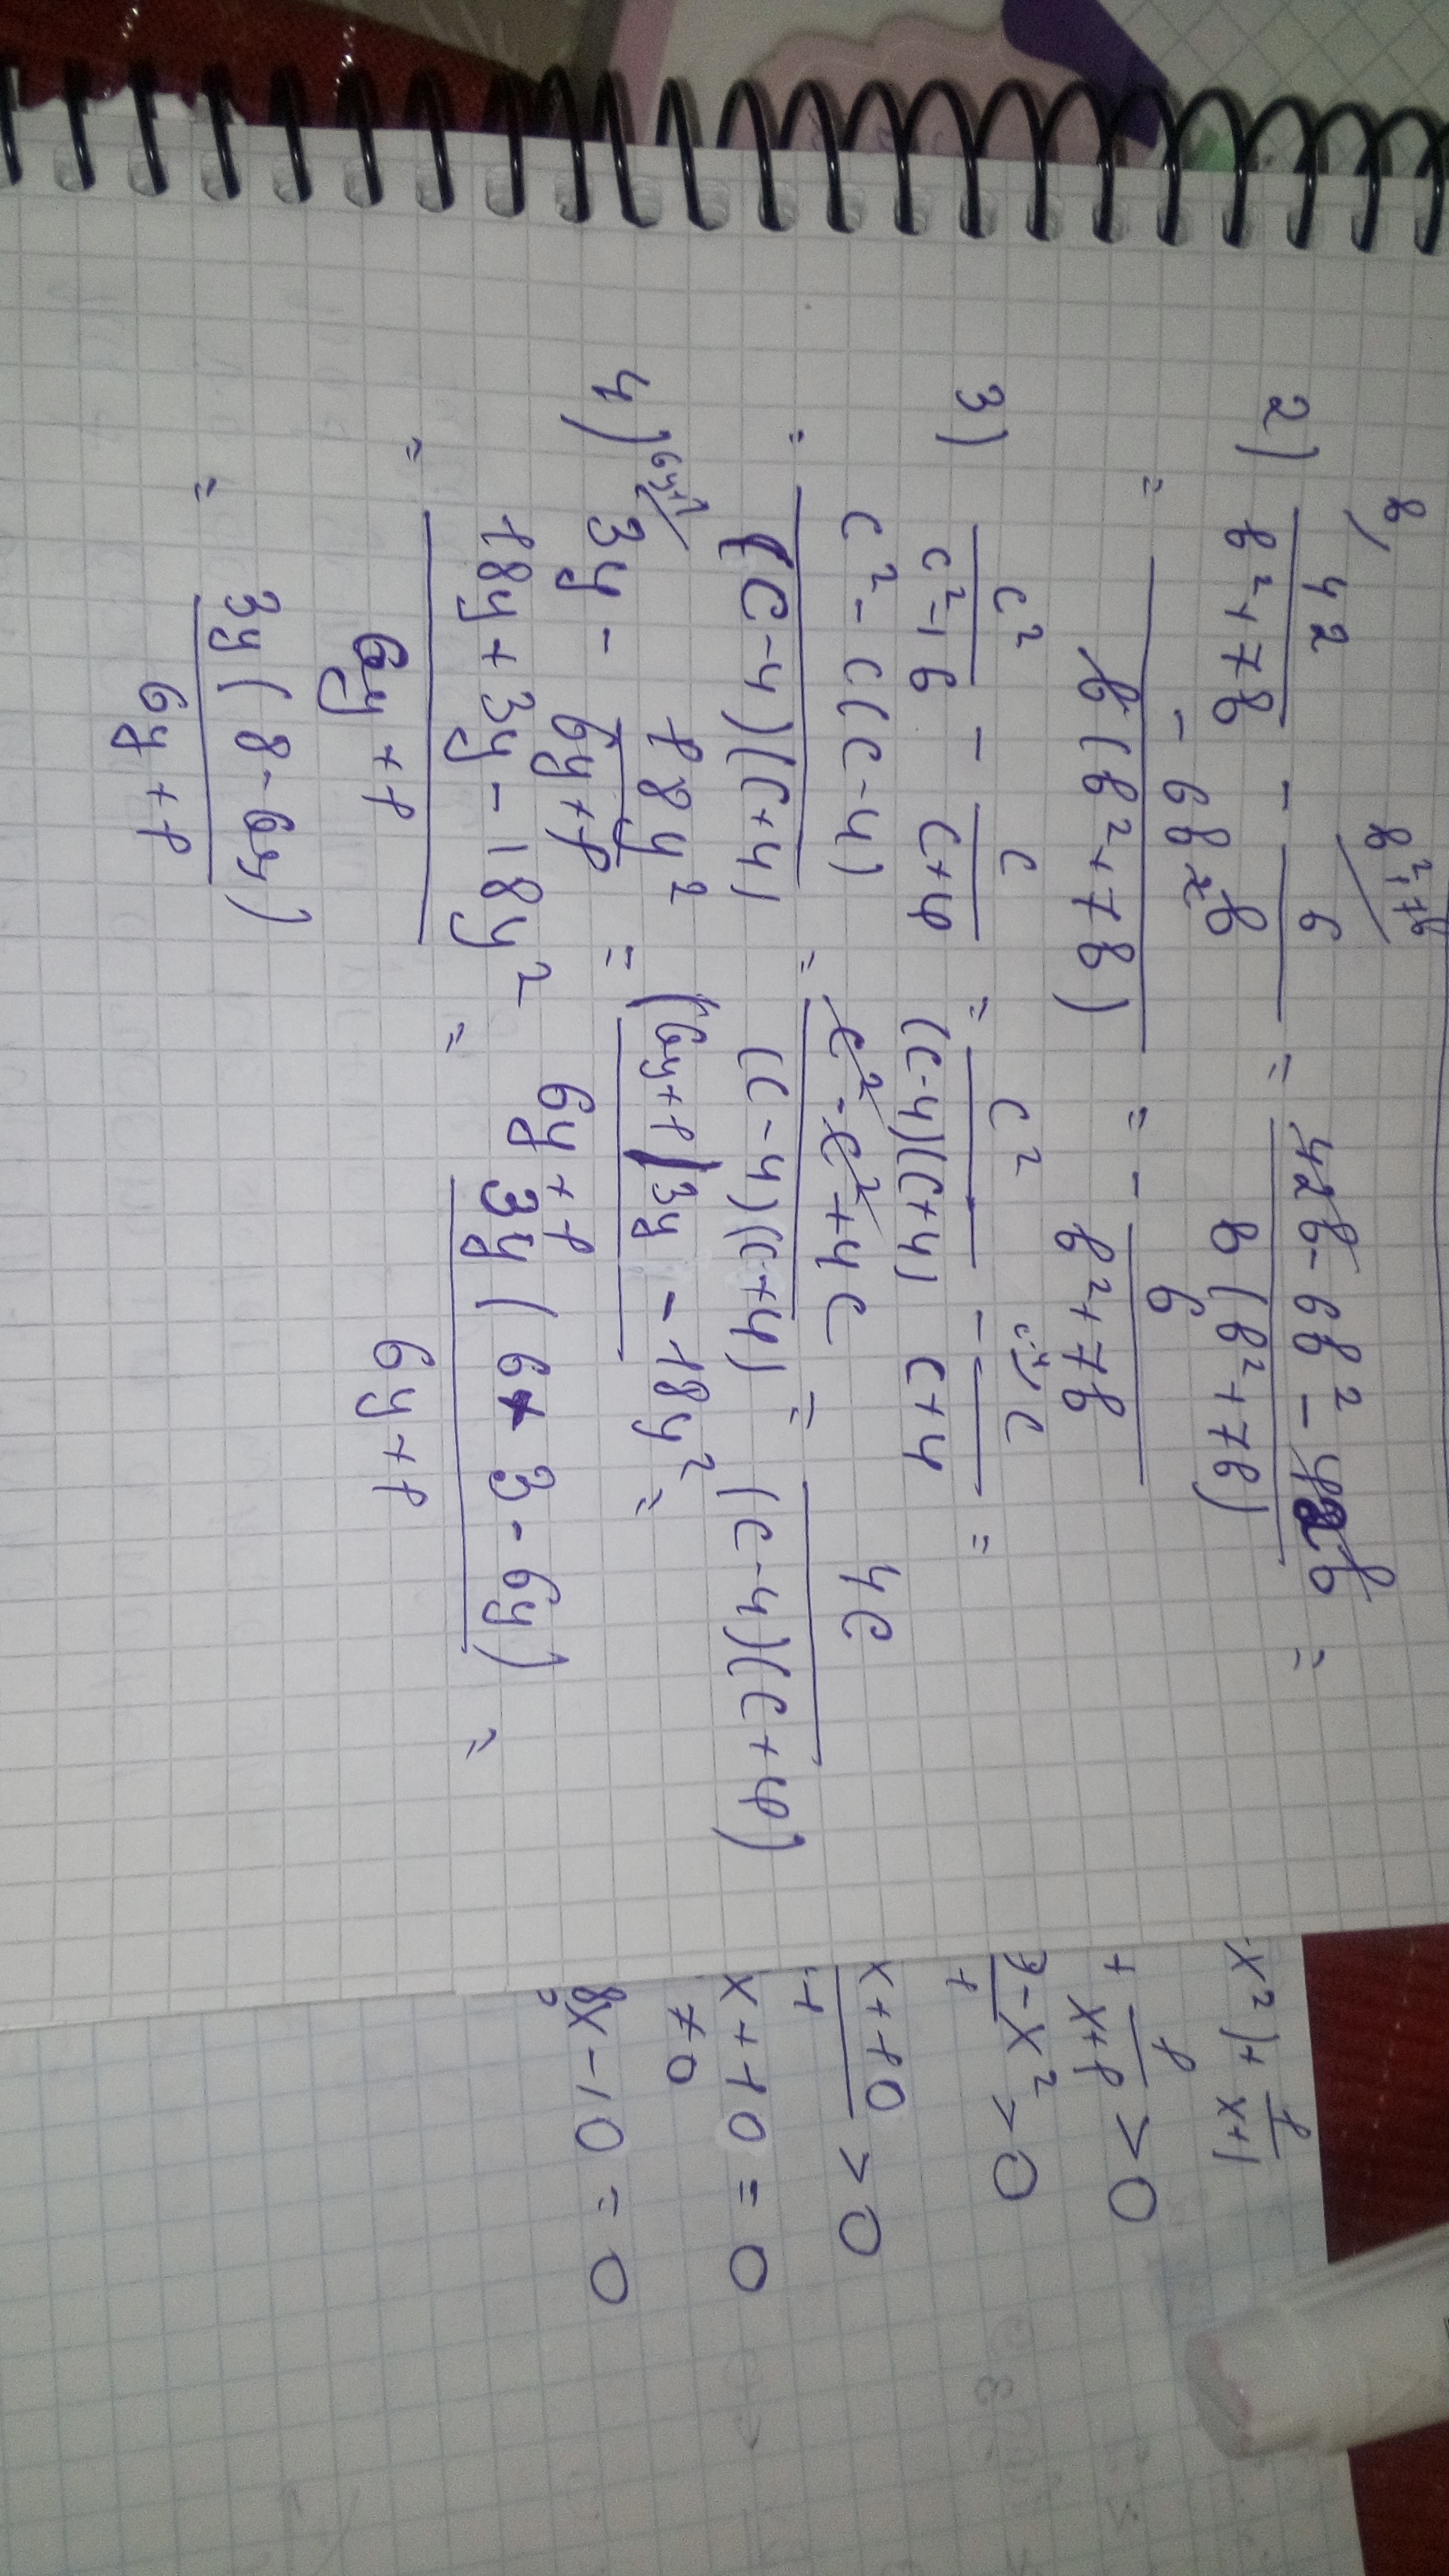 b/ b²+7b/
2) 42/(b²+7b) - 6/b = (42b - 6b² - 42b)/(b(b²+7b)) =
= - 6b²/(b(b²+7b)) = - 6/(b²+7b)
3) c²/(c²-16) - c/(c+4) = c²/((c-4)(c+4)) - c-4/ c/(c+4) =
= (c² - c(c-4))/((c-4)(c+4)) = (c² - c² + 4c)/((c-4)(c+4)) = 4c/((c-4)(c+4))
4) 6y+1/ 3y - 18y²/(6y+1) = ((6y+1)3y - 18y²)/(6y+1) =
= (18y + 3y - 18y²)/(6y+1) = 3y(6+3-6y)/(6y+1) =
= 3y(8-6y)/(6y+1)
x²)+ 1/(x+1)
+ 1/(x+1) > 0
3-x² > 0
1
x+10 > 0
x+10 = 0
≠0
8x-10 = 0